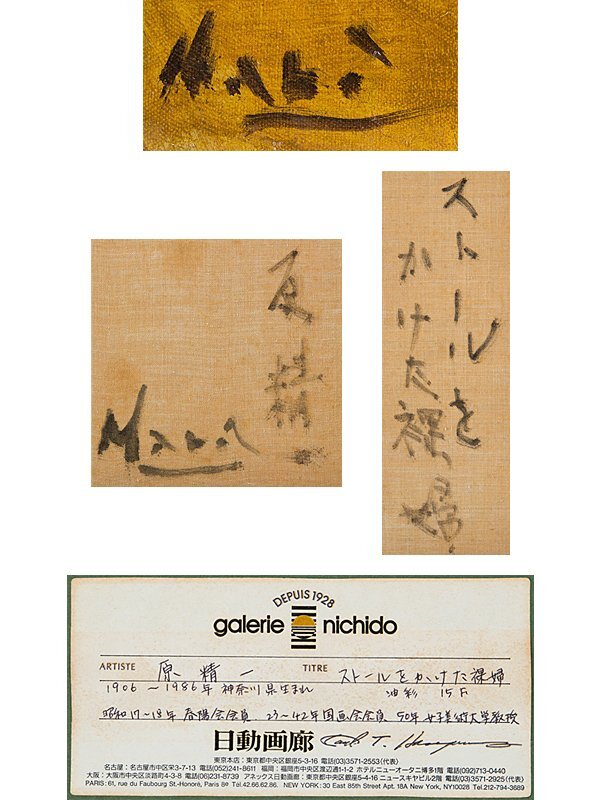 Hara
ストールを
かけた裸婦
原精一
Hara
DEPUIS 1928
galerie nichido
ARTISTE 原 精一 TITRE ストールをかけた裸婦
1906 〜1986年 神奈川県生まれ 油彩 15F
昭和17〜18年 春陽会会員 23〜42年国画会会員 50年女子美術大学教授
日動画廊
東京本店：東京都中央区銀座5-3-16 電話(03)3571-2553(代表)
名古屋：名古屋市中区栄3-7-13 電話(052)241-8611 福岡：福岡市中央区渡辺通1-1-2 ホテルニューオータニ博多1階 電話(092)713-0440
大阪：大阪市中央区淡路町4-3-8 電話(06)231-8739 アネックス日動画廊：東京都中央区銀座5-4-16 ニュースキヤビル2階 電話(03)3571-2925(代表)
PARIS: 61, rue du Faubourg St-Honoré, Paris 8e Tel.42.66.62.86. NEW YORK: 30 East 85th Street Apt. 18A New York, NY10028 Tel.212-794-3689